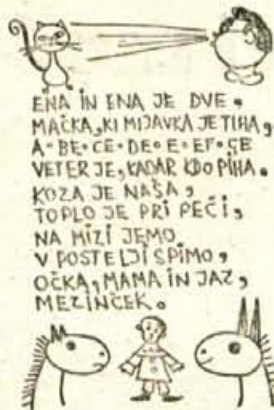 ENA IN ENA JE DVE,
MAČKA, KI MIJAVKA JE TIHA,
A•BE•CE•DE•E•EF•GE
VETER JE, KADAR KDO PIHA.
KOZA JE NAŠA,
TOPLO JE PRI PEČI,
NA MIZI JEMO
V POSTELJI SPIMO,
OČKA, MAMA IN JAZ,
MEZINČEK.